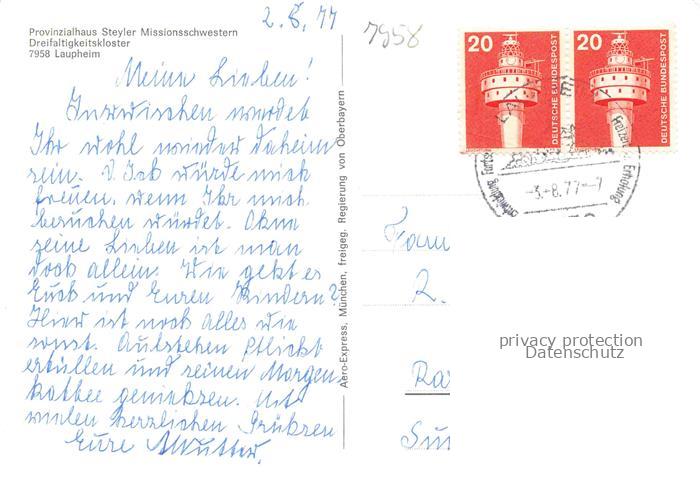 2.8.77
7958
Provinzialhaus Steyler Missionsschwestern
Dreifaltigkeitskloster
7958 Laupheim
Meine Lieben!
Inzwischen werdet
Ihr wohl wieder daheim
sein. Ich würde mich
freuen, wenn Ihr mich
besuchen würdet. Ohne
seine Lieben ist man
doch allein. Wie geht es
Euch und Euren Kindern?
Hier ist noch alles wie
sonst. Aufstehen Pflicht
erfüllen und seinen Morgen
kaffee genießen. Mit
vielen herzlichen Grüßen
Eure Mutter.
Aero-Express, München, freigeg. Regierung von Oberbayern
20 DEUTSCHE BUNDESPOST
20 DEUTSCHE BUNDESPOST
Erholung
-3.-8.77--7
Fam
2.
Ra
privacy protection
Datenschutz